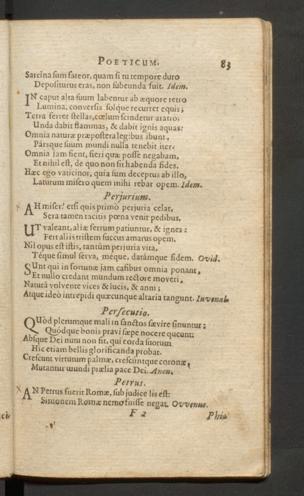 POETICUM. 83
Sarcina sum fateor, quam si tu tempore duro
Depositurus eras, non subeunda fuit. Idem.
IN caput alta suum labentur ab æquore retro
Lumina, conversis solque recurret equis;
Terra ferret stellas, cœlum scindetur aratro:
Unda dabit flammas, & dabit ignis aquas:
Omnia naturæ præpostera legibus ibunt,
Pârsque suum mundi nulla tenebit iter.
Omnia jam fient, fieri quæ posse negabam,
Et nihil est, de quo non sit habenda fides.
Hæc ego vaticinor, quia sum deceptus ab illo,
Laturum misero quem mihi rebar opem. Idem.
Perjurium.
AH miser! etsi quis primò perjuria celat,
Sera tamen tacitis pœna venit pedibus.
UT valeant, aliæ ferrum patiuntur, & ignes:
Fert aliis tristem succus amarus opem.
Nil opus est istis, tantùm perjuria vita,
Téque simul serva, méque, datámque fidem. Ovid.
SUnt qui in fortunæ jam casibus omnia ponant,
Et nullo credant mundum rectore moveri,
Naturâ volvente vices & lucis, & anni;
Atque ideò intrepidi quæcunque altaria tangunt. Iuvenal.
Persecutio.
QUòd plerumque mali in sanctos sævire sinuntur;
Quódque bonis pravi sæpe nocere queunt;
Absque Dei nutu non fit, qui corda suorum
Hic etiam bellis glorificanda probat.
Crescunt virtutum palmæ, crescúntque coronæ,
Mutantur mundi prælia pace Dei. Anon.
Petrus.
AN Petrus fuerit Romæ, sub judice lis est:
Simonem Romæ nemo fuisse negat. Ovvenus.
F 2 Phiu